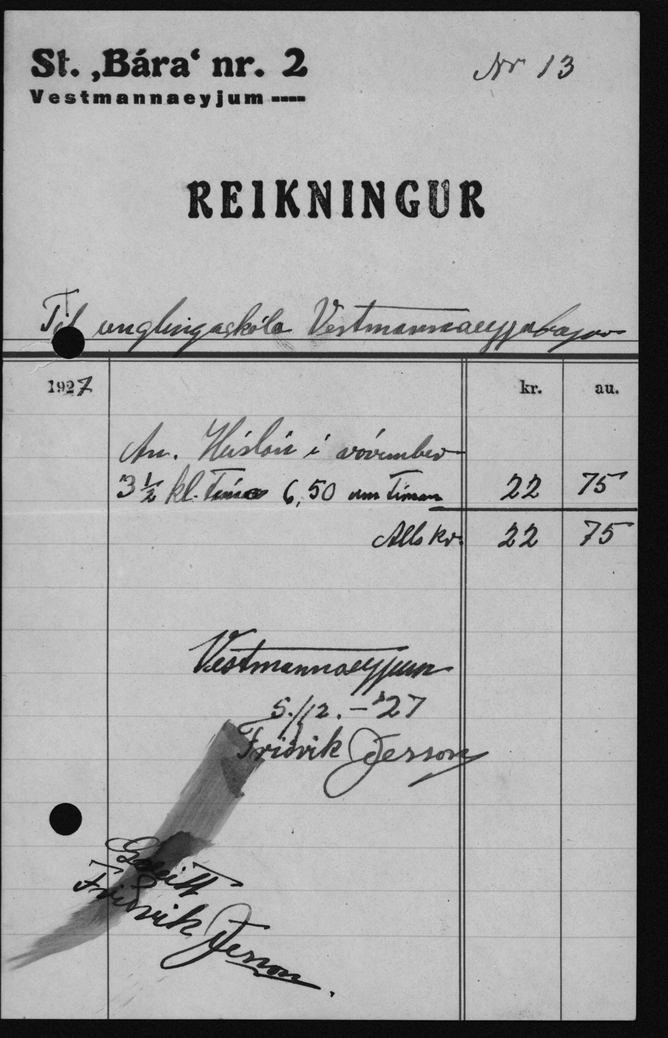 St. ‚Bára‘ nr. 2
Nr 13
Vestmannaeyjum ----
REIKNINGUR
Til unglingaskóla Vestmannaeyjabæjar
1927 kr. au.
An. Húslán í nóvember
3 1/2 kl. Tíma 6,50 um Timan 22 75
Alls kr. 22 75
Vestmannaeyjum
5./12. - '27
Friðrik Jesson
Greitt
Friðrik Jesson.